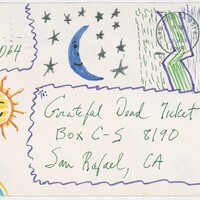 064
To:
Grateful Dead Ticket
Box C-S 8190
San Rafael, CA